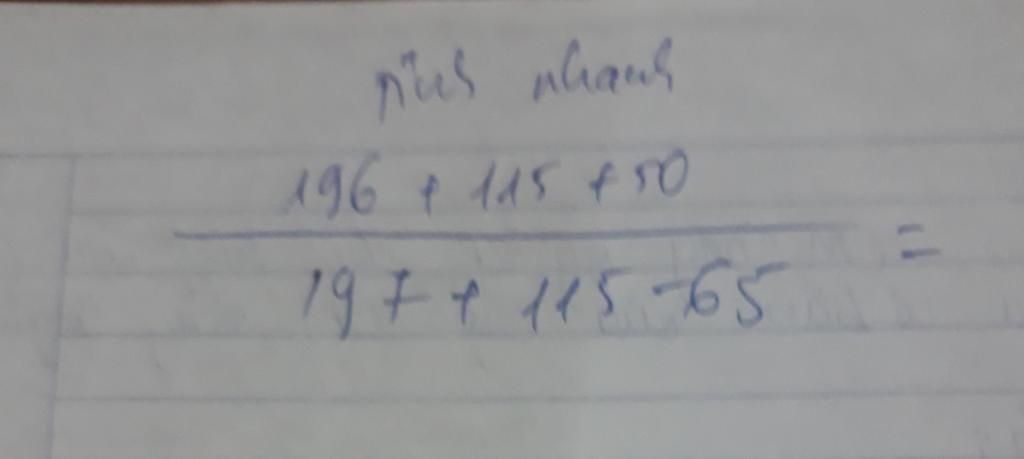 tính nhanh
196 + 115 + 50
197 + 115 - 65
=